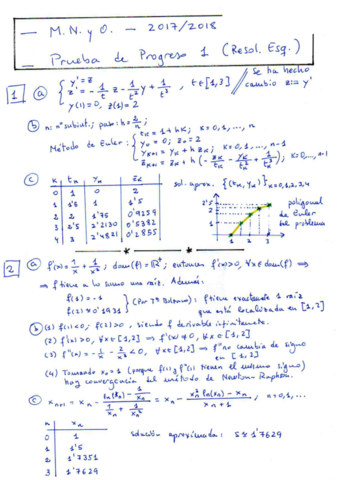 — M.N. y O. — 2017/2018
— Prueba de Progreso 1 (Resol. Esq.)
1 (a) { y' = z
z' = -1/t z - 1/t² y + 1/t³ , t ∈ [1,3] // Se ha hecho
y(1)=0, z(1)=2 cambio z:= y'
(b) n: nº subint.; paso: h = 2/n;
Método de Euler: { t_k = 1 + hk, k=0,1,...,n
y_0 = 0; z_0 = 2
y_{k+1} = y_k + h z_k, k=0,1,...,n-1
z_{k+1} = z_k + h(-z_k/t_k - y_k/t_k² + 1/t_k³), k=0,...,n-1
(c) k t_k y_k z_k sol. aprox.: {(t_k, y_k)} k=0,1,2,3,4
0 1 0 2
1 1'5 1 1'5
2 2 1'75 0'9259
3 2'5 2'2130 0'5382
4 3 2'4821 0'2855
2'5
2
1
1 2 3
poligonal
de Euler
del problema
2 (a) f'(x) = 1/x + 1/x²; dom(f) = ℝ⁺; entonces f'(x)>0, ∀x∈dom(f) ⇒
⇒ f tiene a lo sumo una raíz. Además:
f(1) = -1
f(2) ≈ 0'1931 } (Por Tª Bolzano): f tiene exactamente 1 raíz
que está localizada en [1,2]
(b) (1) f(1)<0, f(2)>0, siendo f derivable infinitamente.
(2) f'(x) >0, ∀x∈[1,2] ⇒ f'(x) ≠ 0, ∀x ∈ [1,2]
(3) f''(x) = -1/x² - 2/x³ < 0, ∀x∈[1,2] ⇒ f'' no cambia de signo
en [1,2]
(4) Tomando x_0 = 1 (porque f(1) y f''(1) tienen el mismo signo)
hay convergencia del método de Newton-Raphson.
(c) x_{n+1} = x_n - (ln(x_n) - 1/x_n)/(1/x_n + 1/x_n²) = x_n - (x_n² ln(x_n) - x_n)/(x_n + 1), n=0,1,...
n x_n
0 1
1 1'5
2 1'7351
3 1'7629
solución aproximada: s ≈ 1'7629